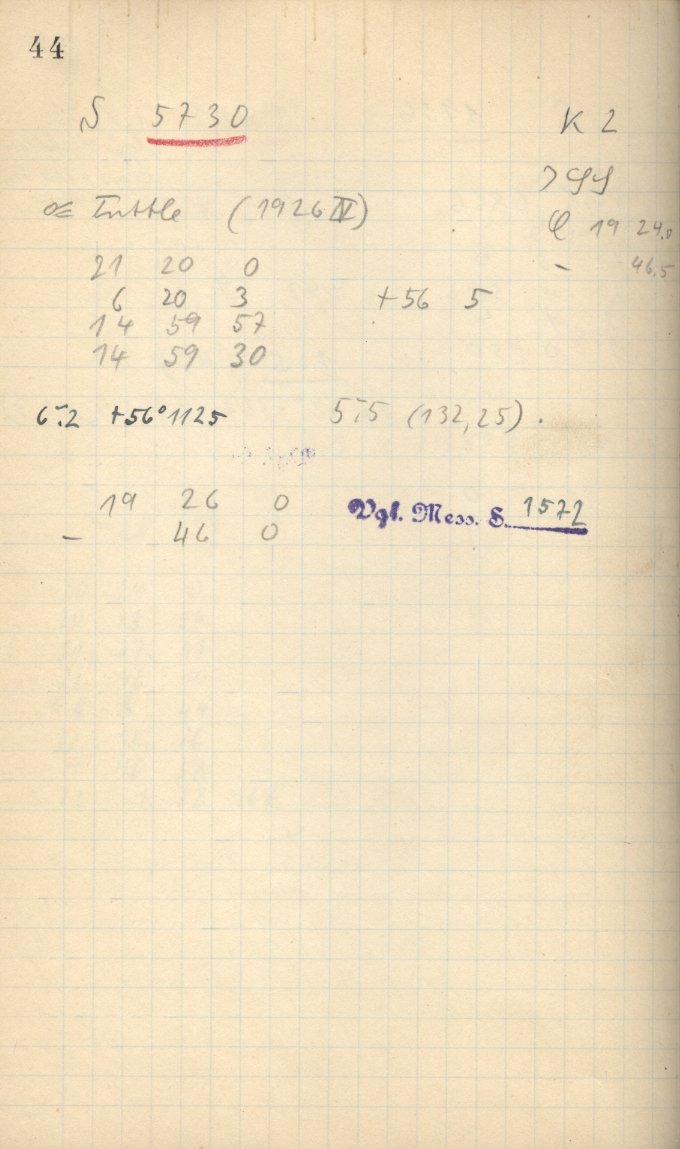 44
S 5730
K 2
Tuttle (1926 IV)
19 24.0
21 20 0
- 46.5
6 20 3 +56 5
14 59 57
14 59 30
6.2 +56° 1125 5.5 (132,25).
19 26 0
Vgl. Mess. S. 1572
- 46 0